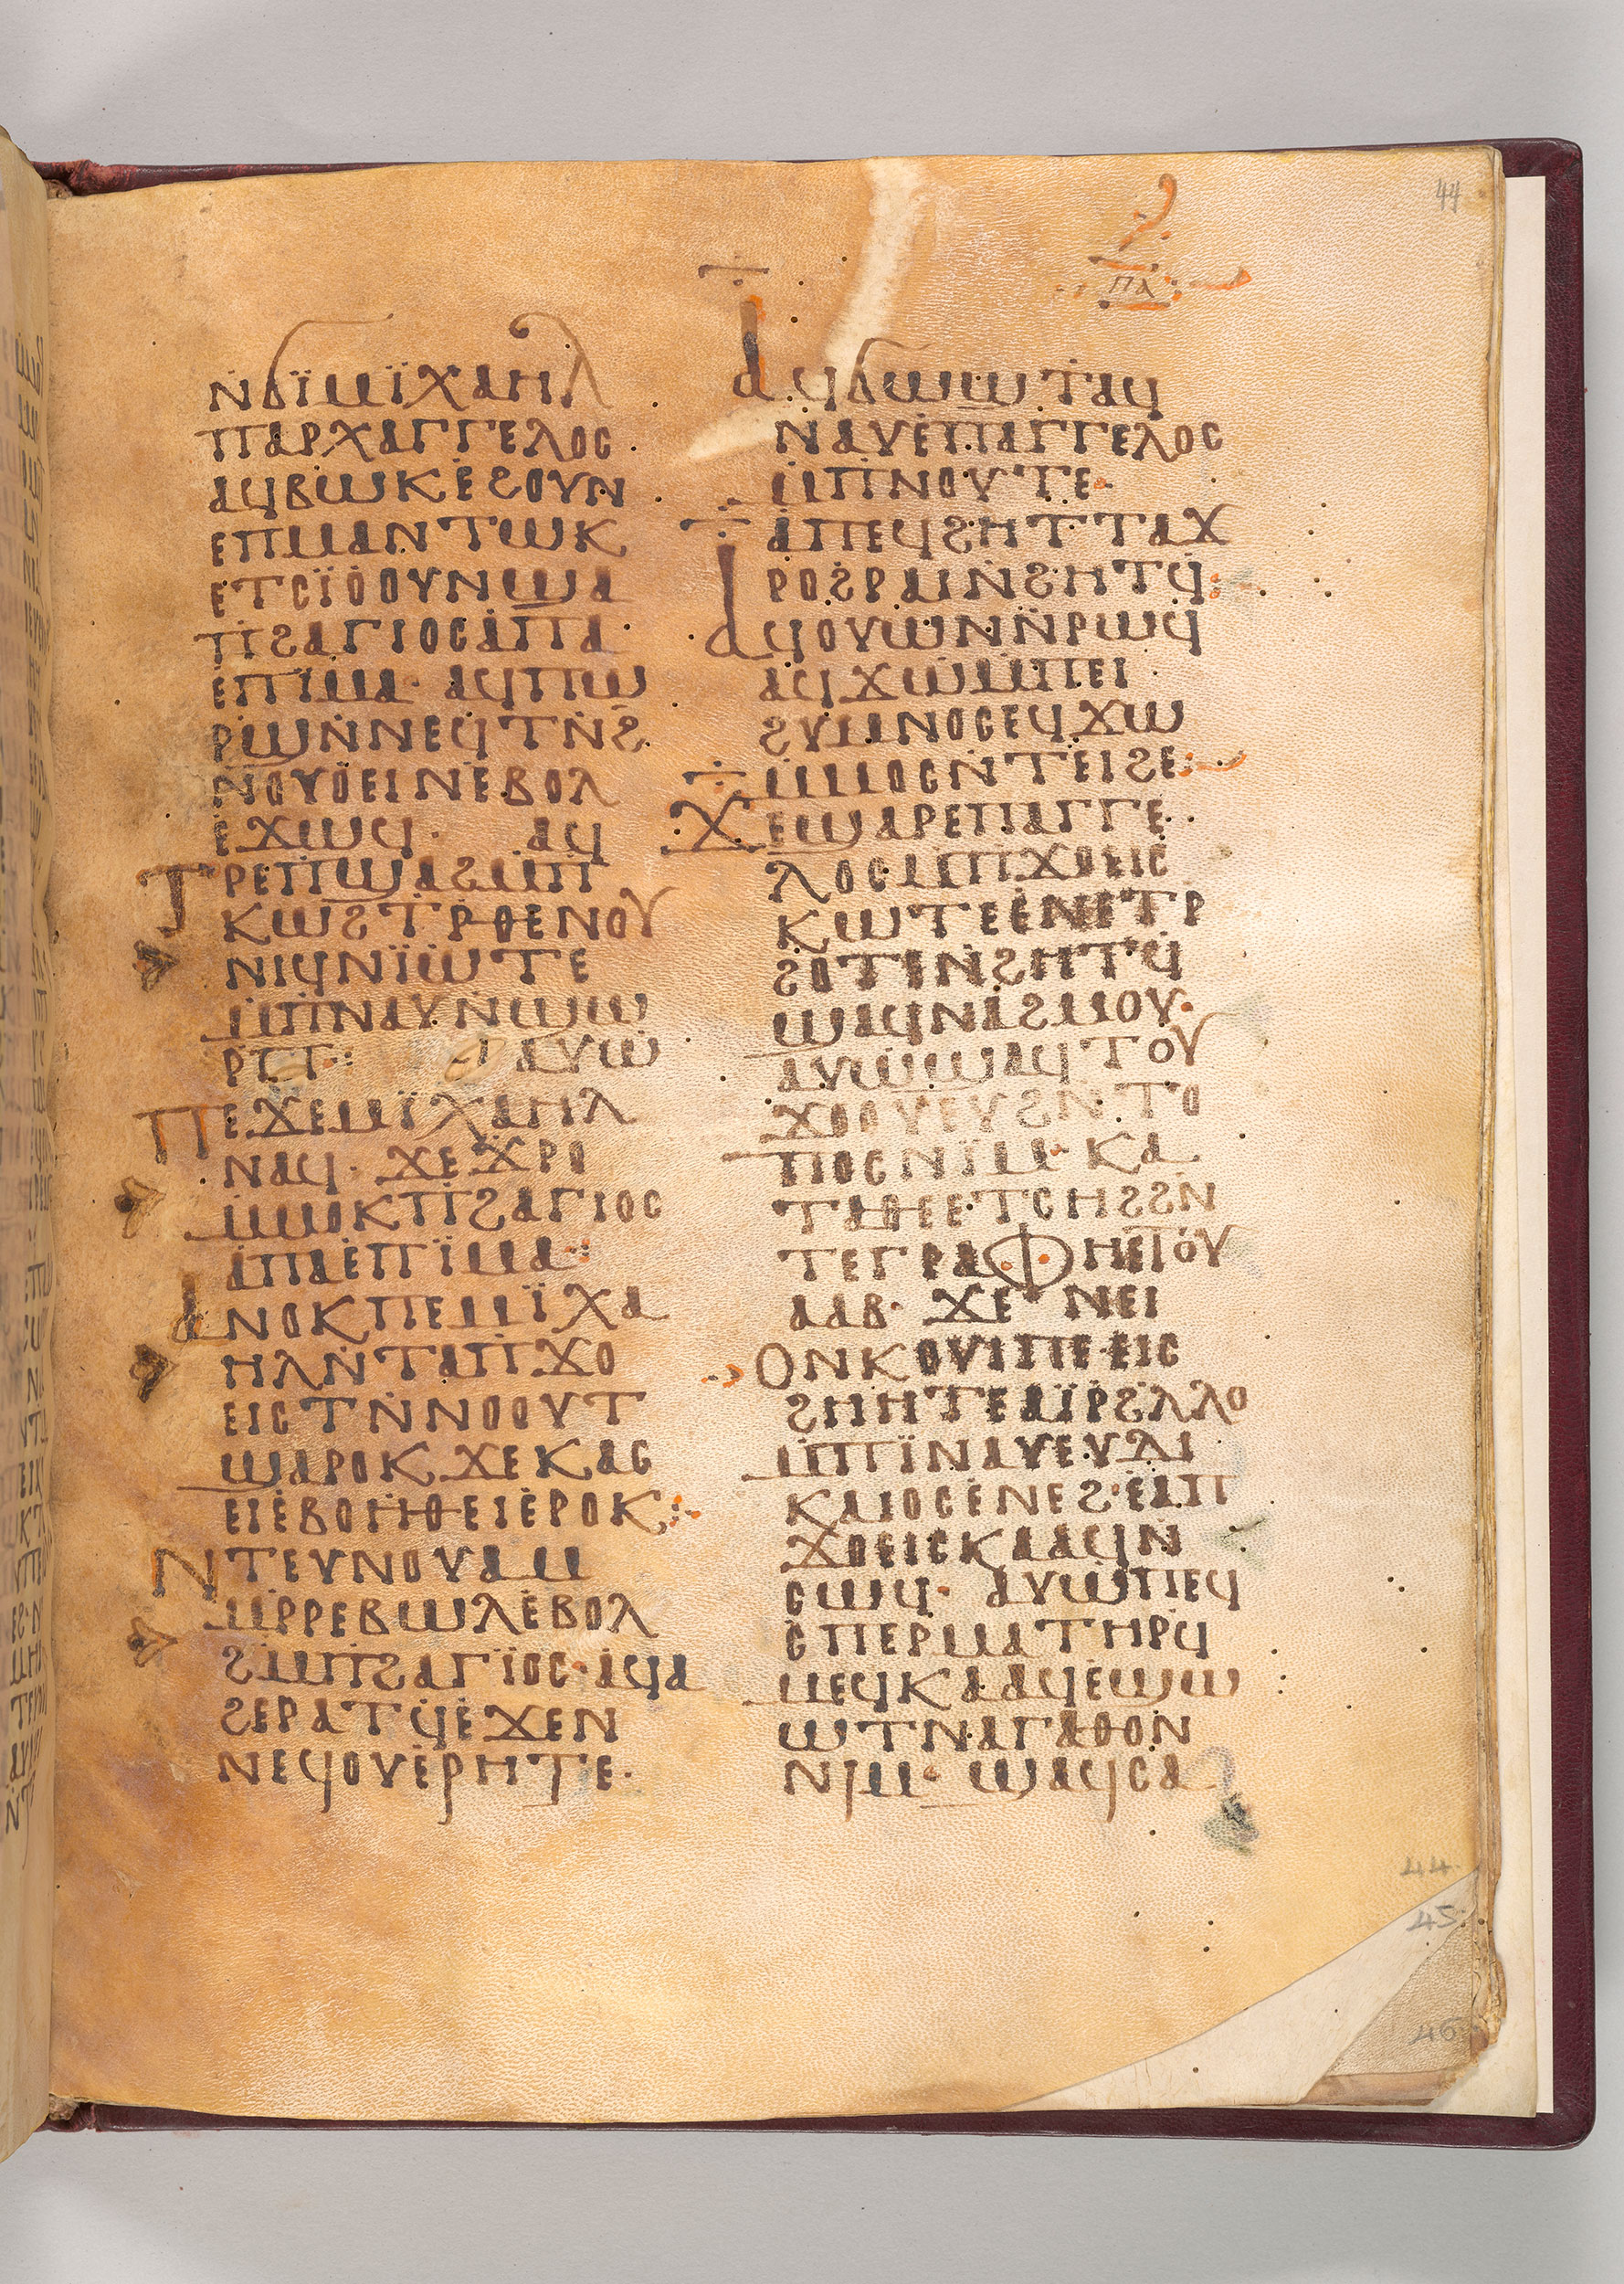 44
ⲡⲁ
ⲛϭⲓⲙⲓⲭⲁⲏⲗ
ⲡⲁⲣⲭⲁⲅⲅⲉⲗⲟⲥ·
ⲁϥⲃⲱⲕ ⲉϩⲟⲩⲛ
ⲉⲡⲙⲁⲛⲧⲱⲕ
ⲉⲧⲥⲓⲟⲟⲩⲛ ϣⲁ
ⲡϩⲁⲅⲓⲟⲥ ⲁⲡⲁ·
ⲉⲡⲓⲙⲁ· ⲁϥⲡⲱ
ⲣϣ ⲛⲛⲉϥⲧⲛϩ
ⲛⲟⲩⲟⲉⲓⲛ ⲉⲃⲟⲗ
ⲉϫⲱϥ· ⲁϥ
ⲧⲣⲉⲡϣⲁϩ ⲙⲡ
ⲕⲱϩⲧ ⲣⲑⲉ ⲛⲟⲩ
ⲛⲓϥ ⲛⲓⲱⲧⲉ
ⲙⲡⲛⲁⲩ ⲛϣⲱ
ⲣⲡ: ⲁⲩⲱ
ⲡⲉϫⲉ ⲙⲓⲭⲁⲏⲗ
ⲛⲁϥ· ϫⲉ ϫⲣⲟ
ⲙⲙⲟⲕ ⲡϩⲁⲅⲓⲟⲥ
ⲁⲡⲁ ⲉⲡⲓⲙⲁ:
ⲁⲛⲟⲕ ⲡⲉ ⲙⲓⲭⲁ
ⲏⲗ ⲛⲧⲁⲡϫⲟ
ⲉⲓⲥ ⲧⲛⲛⲟⲟⲩⲧ
ϣⲁⲣⲟⲕ ϫⲉⲕⲁⲥ
ⲉⲓⲉⲃⲟⲏⲑⲉⲓ ⲉⲣⲟⲕ:
ⲛⲧⲉⲩⲛⲟⲩ ⲁⲙ
ⲙⲣⲣⲉ ⲃⲱⲗ ⲉⲃⲟⲗ
ϩⲙⲡϩⲁⲅⲓⲟⲥ· ⲁϥⲁ
ϩⲉⲣⲁⲧϥ ⲉϫⲉⲛ
ⲛⲉϥⲟⲩⲉⲣⲏⲧⲉ·
ⲁϥϭⲱϣⲧ ⲁϥ
ⲛⲁⲩ ⲉⲡⲁⲅⲅⲉⲗⲟⲥ
ⲙⲡⲛⲟⲩⲧⲉ·
ⲁⲡⲉϥϩⲏⲧ ⲧⲁϫ
ⲣⲟ ϩⲣⲁⲓ ⲛϩⲏⲧϥ:
ⲁϥⲟⲩⲱⲛ ⲛⲣⲱϥ
ⲁϥϫⲱ ⲙⲡⲉⲓ
ϩⲩⲙⲛⲟⲥ ⲉϥϫⲱ
ⲙⲙⲟⲥ ⲛⲧⲉⲓϩⲉ:
ϫⲉ ϣⲁⲣⲉⲡⲁⲅⲅⲉ
ⲗⲟⲥ ⲙⲡϫⲟⲉⲓⲥ
ⲕⲱⲧⲉ ⲉⲛⲉⲧⲣ
ϩⲟⲧⲉ ⲛϩⲏⲧϥ
ϣⲁϥⲛⲁϩⲙⲟⲩ·
ⲁⲩⲱ ϣⲁϥⲧⲟⲩ
ϫⲟⲟⲩ ⲉⲩϩⲛ ⲧⲟ
ⲡⲟⲥ ⲛⲓⲙ· ⲕⲁ
ⲧⲁⲑⲉ ⲉⲧⲥⲏϩ ϩⲛ
ⲧⲉⲅⲣⲁⲫⲏ ⲉⲧⲟⲩ
ⲁⲁⲃ· ϫⲉ ⲛⲉⲓ
ⲟ ⲛⲕⲟⲩⲓ ⲡⲉ ⲉⲓⲥ
ϩⲏⲏⲧⲉ ⲁⲓⲣϩⲗⲗⲟ
ⲙⲡⲓⲛⲁⲩ ⲉⲩⲇⲓ
ⲕⲁⲓⲟⲥ ⲉⲛⲉϩ· ⲉⲁⲡ
ϫⲟⲉⲓⲥ ⲕⲁⲁϥ ⲛ
ⲥⲱϥ· ⲁⲩⲱ ⲡⲉϥ
ⲥⲡⲉⲣⲙⲁ ⲧⲏⲣϥ
ⲙⲉϥⲕⲁⲁϥ ⲉϣⲱ
ⲱⲧ ⲛⲁⲅⲁⲑⲟⲛ
ⲛⲓⲙ· ϣⲁϥⲥⲁ
44
45
46